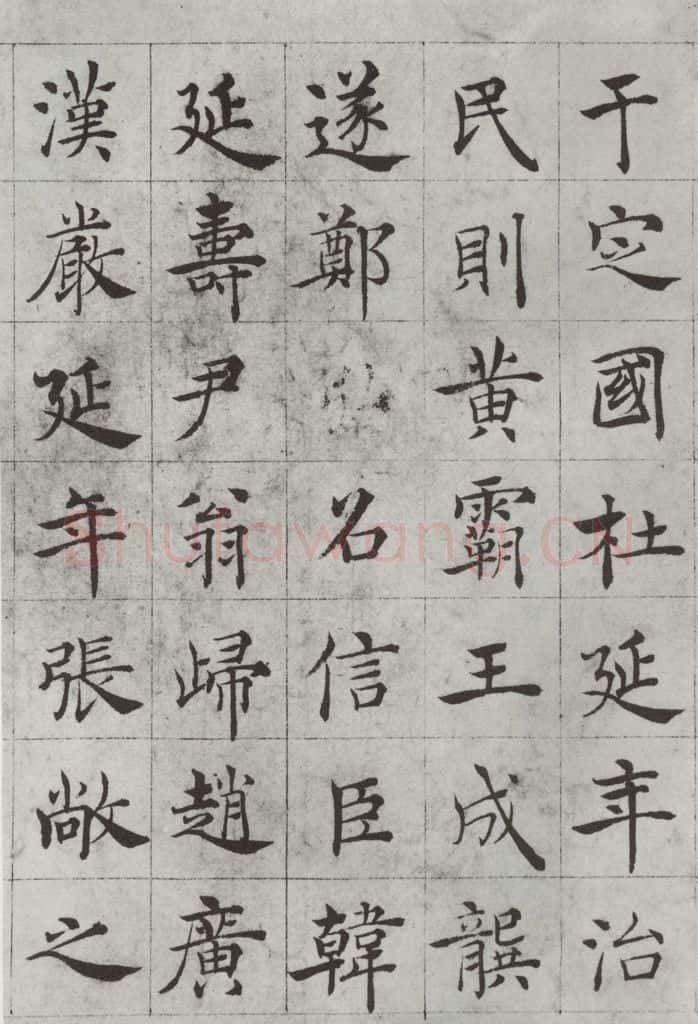 于定國杜延年治
民則黃霸王成龔
遂鄭召信臣韓
延壽尹翁歸趙廣
漢嚴延年張敞之
Shufawang.CN